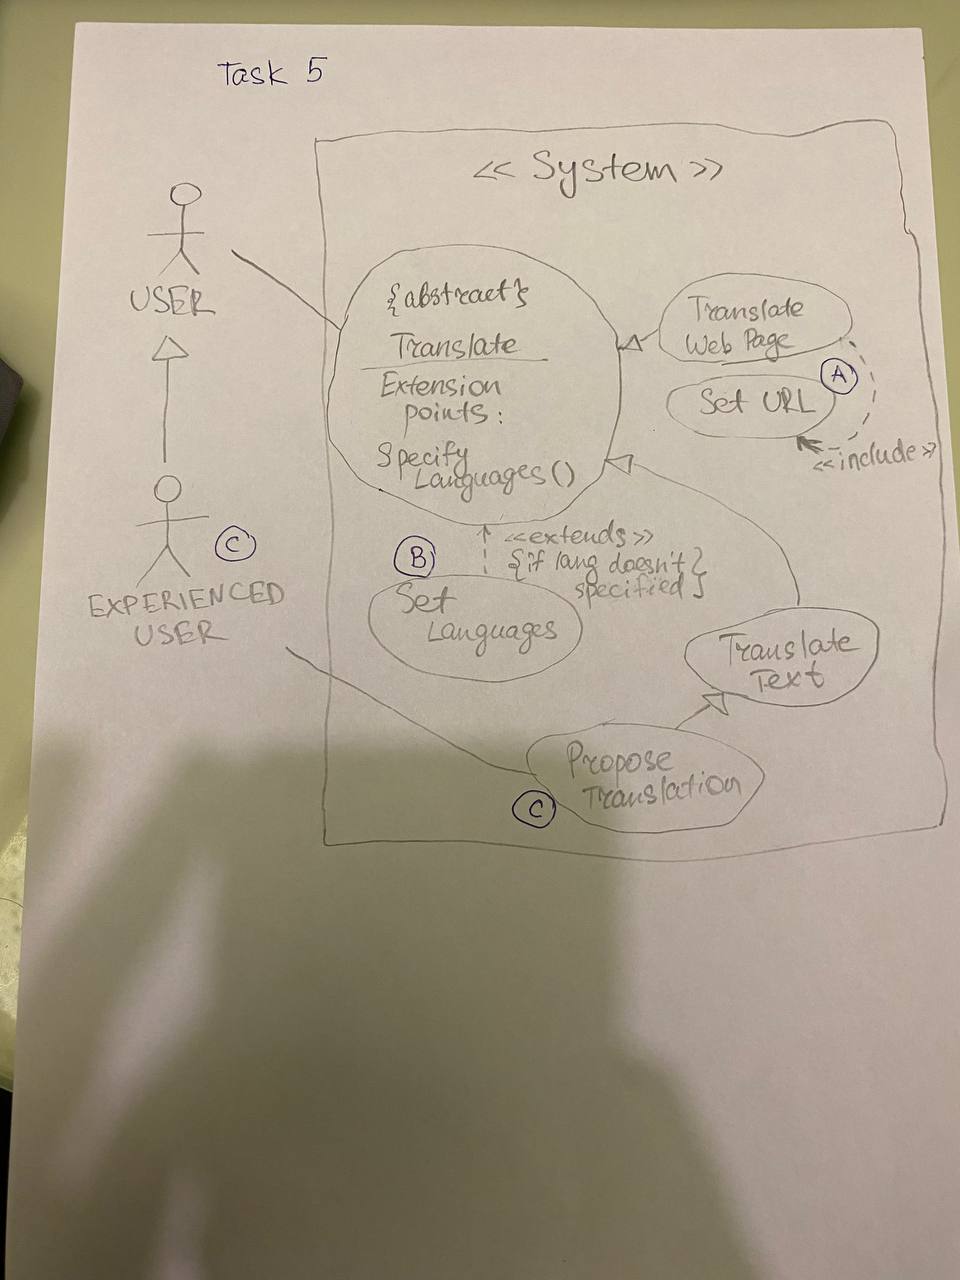 Task 5
<< System >>
USER
{abstract}
Translate
Extension
points:
Specify
Languages()
Translate
Web Page
A
Set URL
<<include>>
<<extends>>
{if lang doesn't}
specified}
B
Set
Languages
C
EXPERIENCED
USER
Translate
Text
Propose
Translation
C